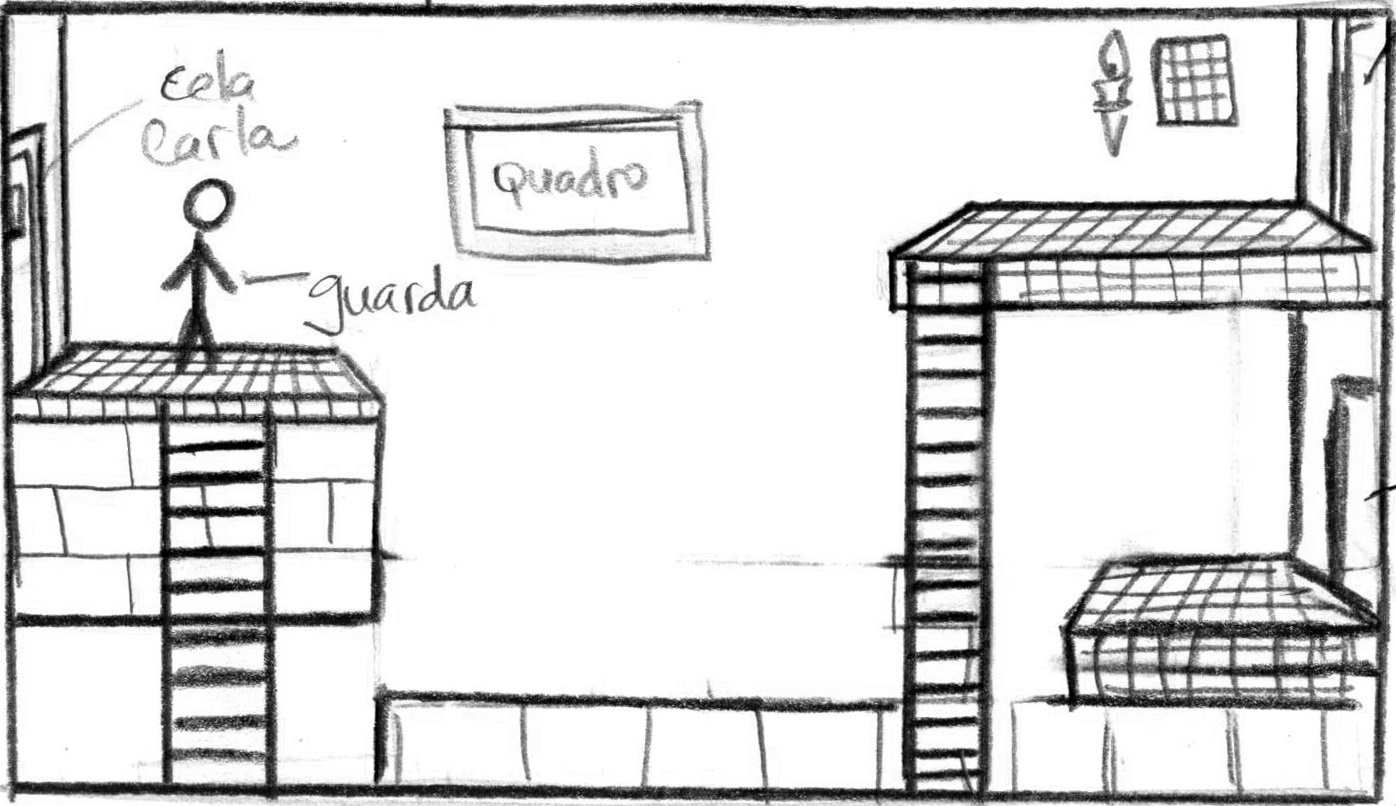 Cela
Carla
Quadro
guarda